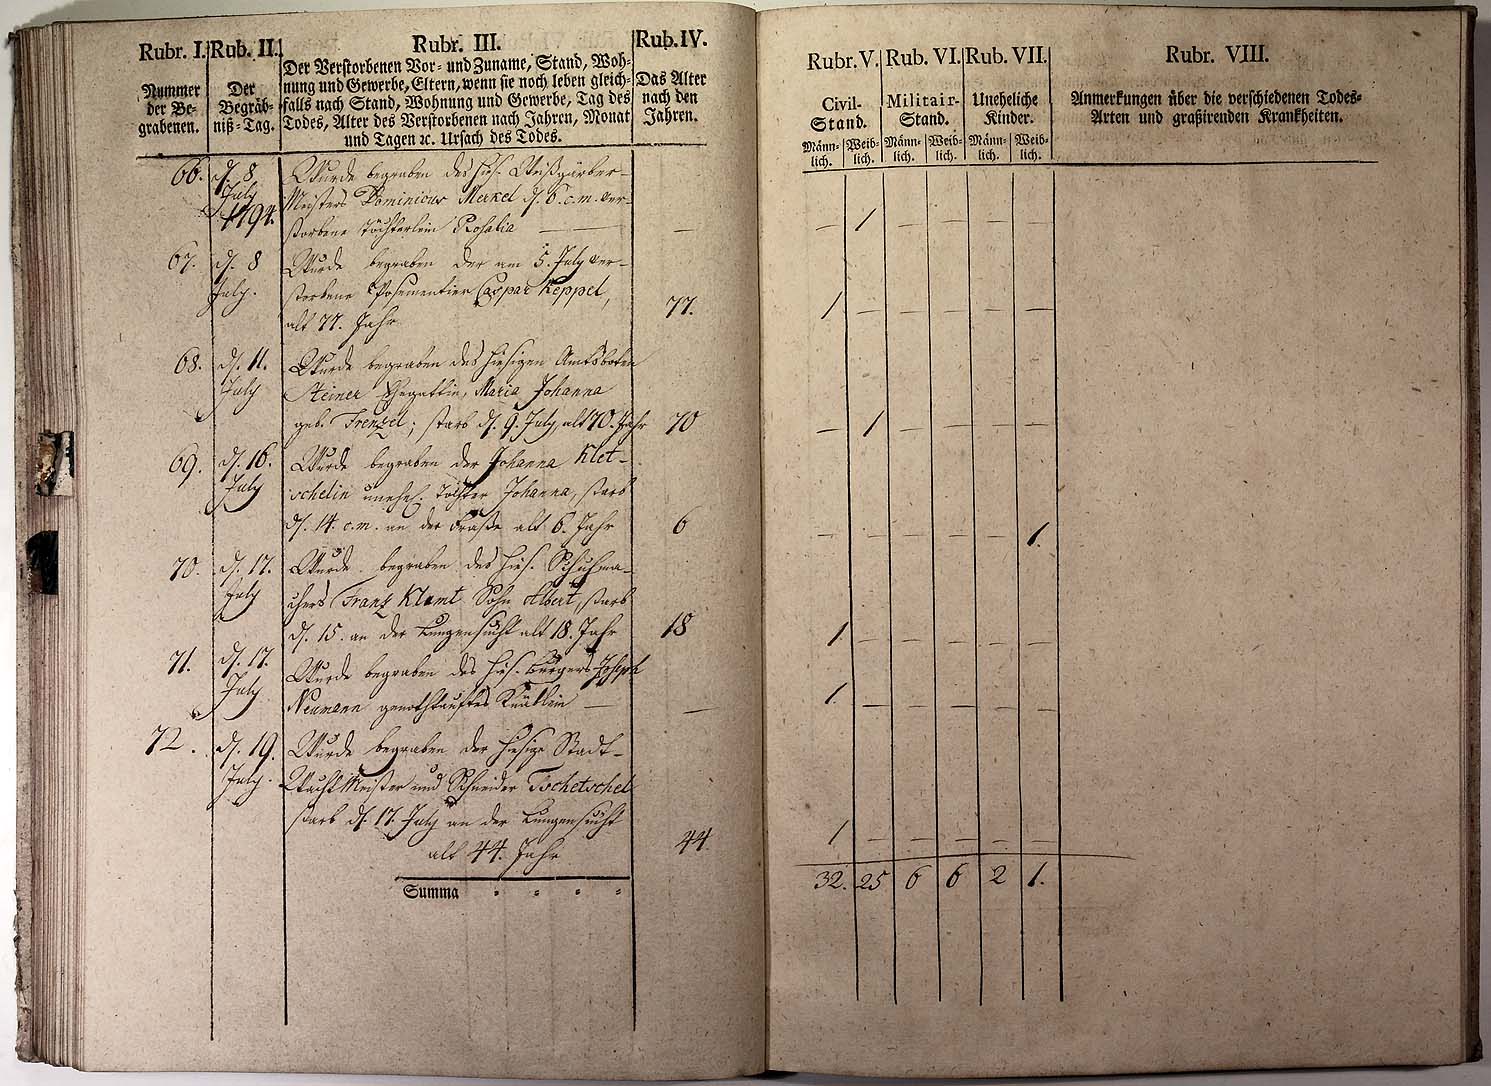 Rubr. I. Rub. II. Rubr. III. Rub. IV.
Nummer der Be-grabenen.
Der Begräb-niß-Tag.
Der Verstorbenen Vor- und Zuname, Stand, Woh-
nung und Gewerbe, Eltern, wenn sie noch leben gleich-
falls nach Stand, Wohnung und Gewerbe, Tag des
Todes, Alter des Verstorbenen nach Jahren, Monat
und Tagen ꝛc. Ursach des Todes.
Das Alter nach den Jahren.
66. d. 8 Wurde begraben des hies. Weißgärber-
July Meisters Dominicus Merkel d. 6. c. m. ver-
1794. storbene Töchterlein Rosalia — —
67. d. 8 Wurde begraben der am 5. July ver-
July. storbene Posementier Caspar Keppel,
alt 77. Jahr 77.
68. d. 11. Wurde begraben des hiesigen Amtsboten
July Steiner Ehegattin, Maria Johanna
geb. Frenzel; starb d. 9. July, alt 70. Jahr 70
69. d. 16. Wurde begraben der Johanna Klet-
July schelin unehel. Tochter Johanna, starb
d. 14. c. m. an der alt 6. Jahr 6
70. d. 17. Wurde begraben des hies. Schuhma-
July chers Franz Klamt Sohn Albert, starb
d. 15. an der Lungensucht alt 18. Jahr 18
71. d. 17. Wurde begraben des hies. Bürgers Joseph
July Neumann genothtauftes Knäblein — —
72. d. 19. Wurde begraben der hiesige Stadt-
July. Wachtmeister und Schneider Tschetschel
starb d. 17. July an der Lungensucht
alt 44. Jahr 44.
Summa
Rubr. V. Rub. VI. Rub. VII. Rubr. VIII.
Civil-Stand.
Militair-Stand.
Uneheliche Kinder.
Anmerkungen über die verschiedenen Todes-
Arten und graßirenden Krankheiten.
Männ-lich. Weib-lich. Männ-lich. Weib-lich. Männ-lich. Weib-lich.
— 1 — — — —
1 — — — — —
— 1 — — — —
— — — — — 1.
1. — — — — —
1. — — — — —
1 — — — — —
32. 25 6 6 2 1.